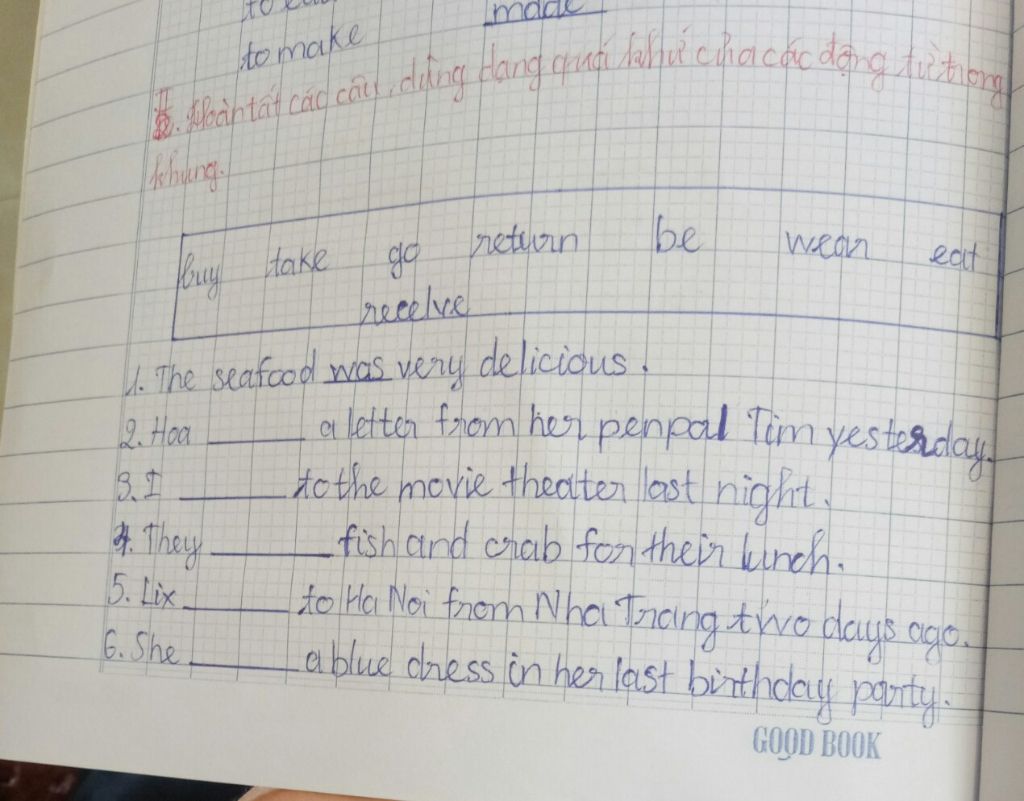 made
to make
II. Hoàn tất các câu, dùng dạng quá khứ của các động từ trong
khung.
buy take go return be wear eat
receive
1. The seafood was very delicious.
2. Hoa ______ a letter from her penpal Tim yesterday.
3. I ______ to the movie theater last night.
4. They ______ fish and crab for their lunch.
5. Lix ______ to Ha Noi from Nha Trang two days ago.
6. She ______ a blue dress in her last birthday party.
GOOD BOOK